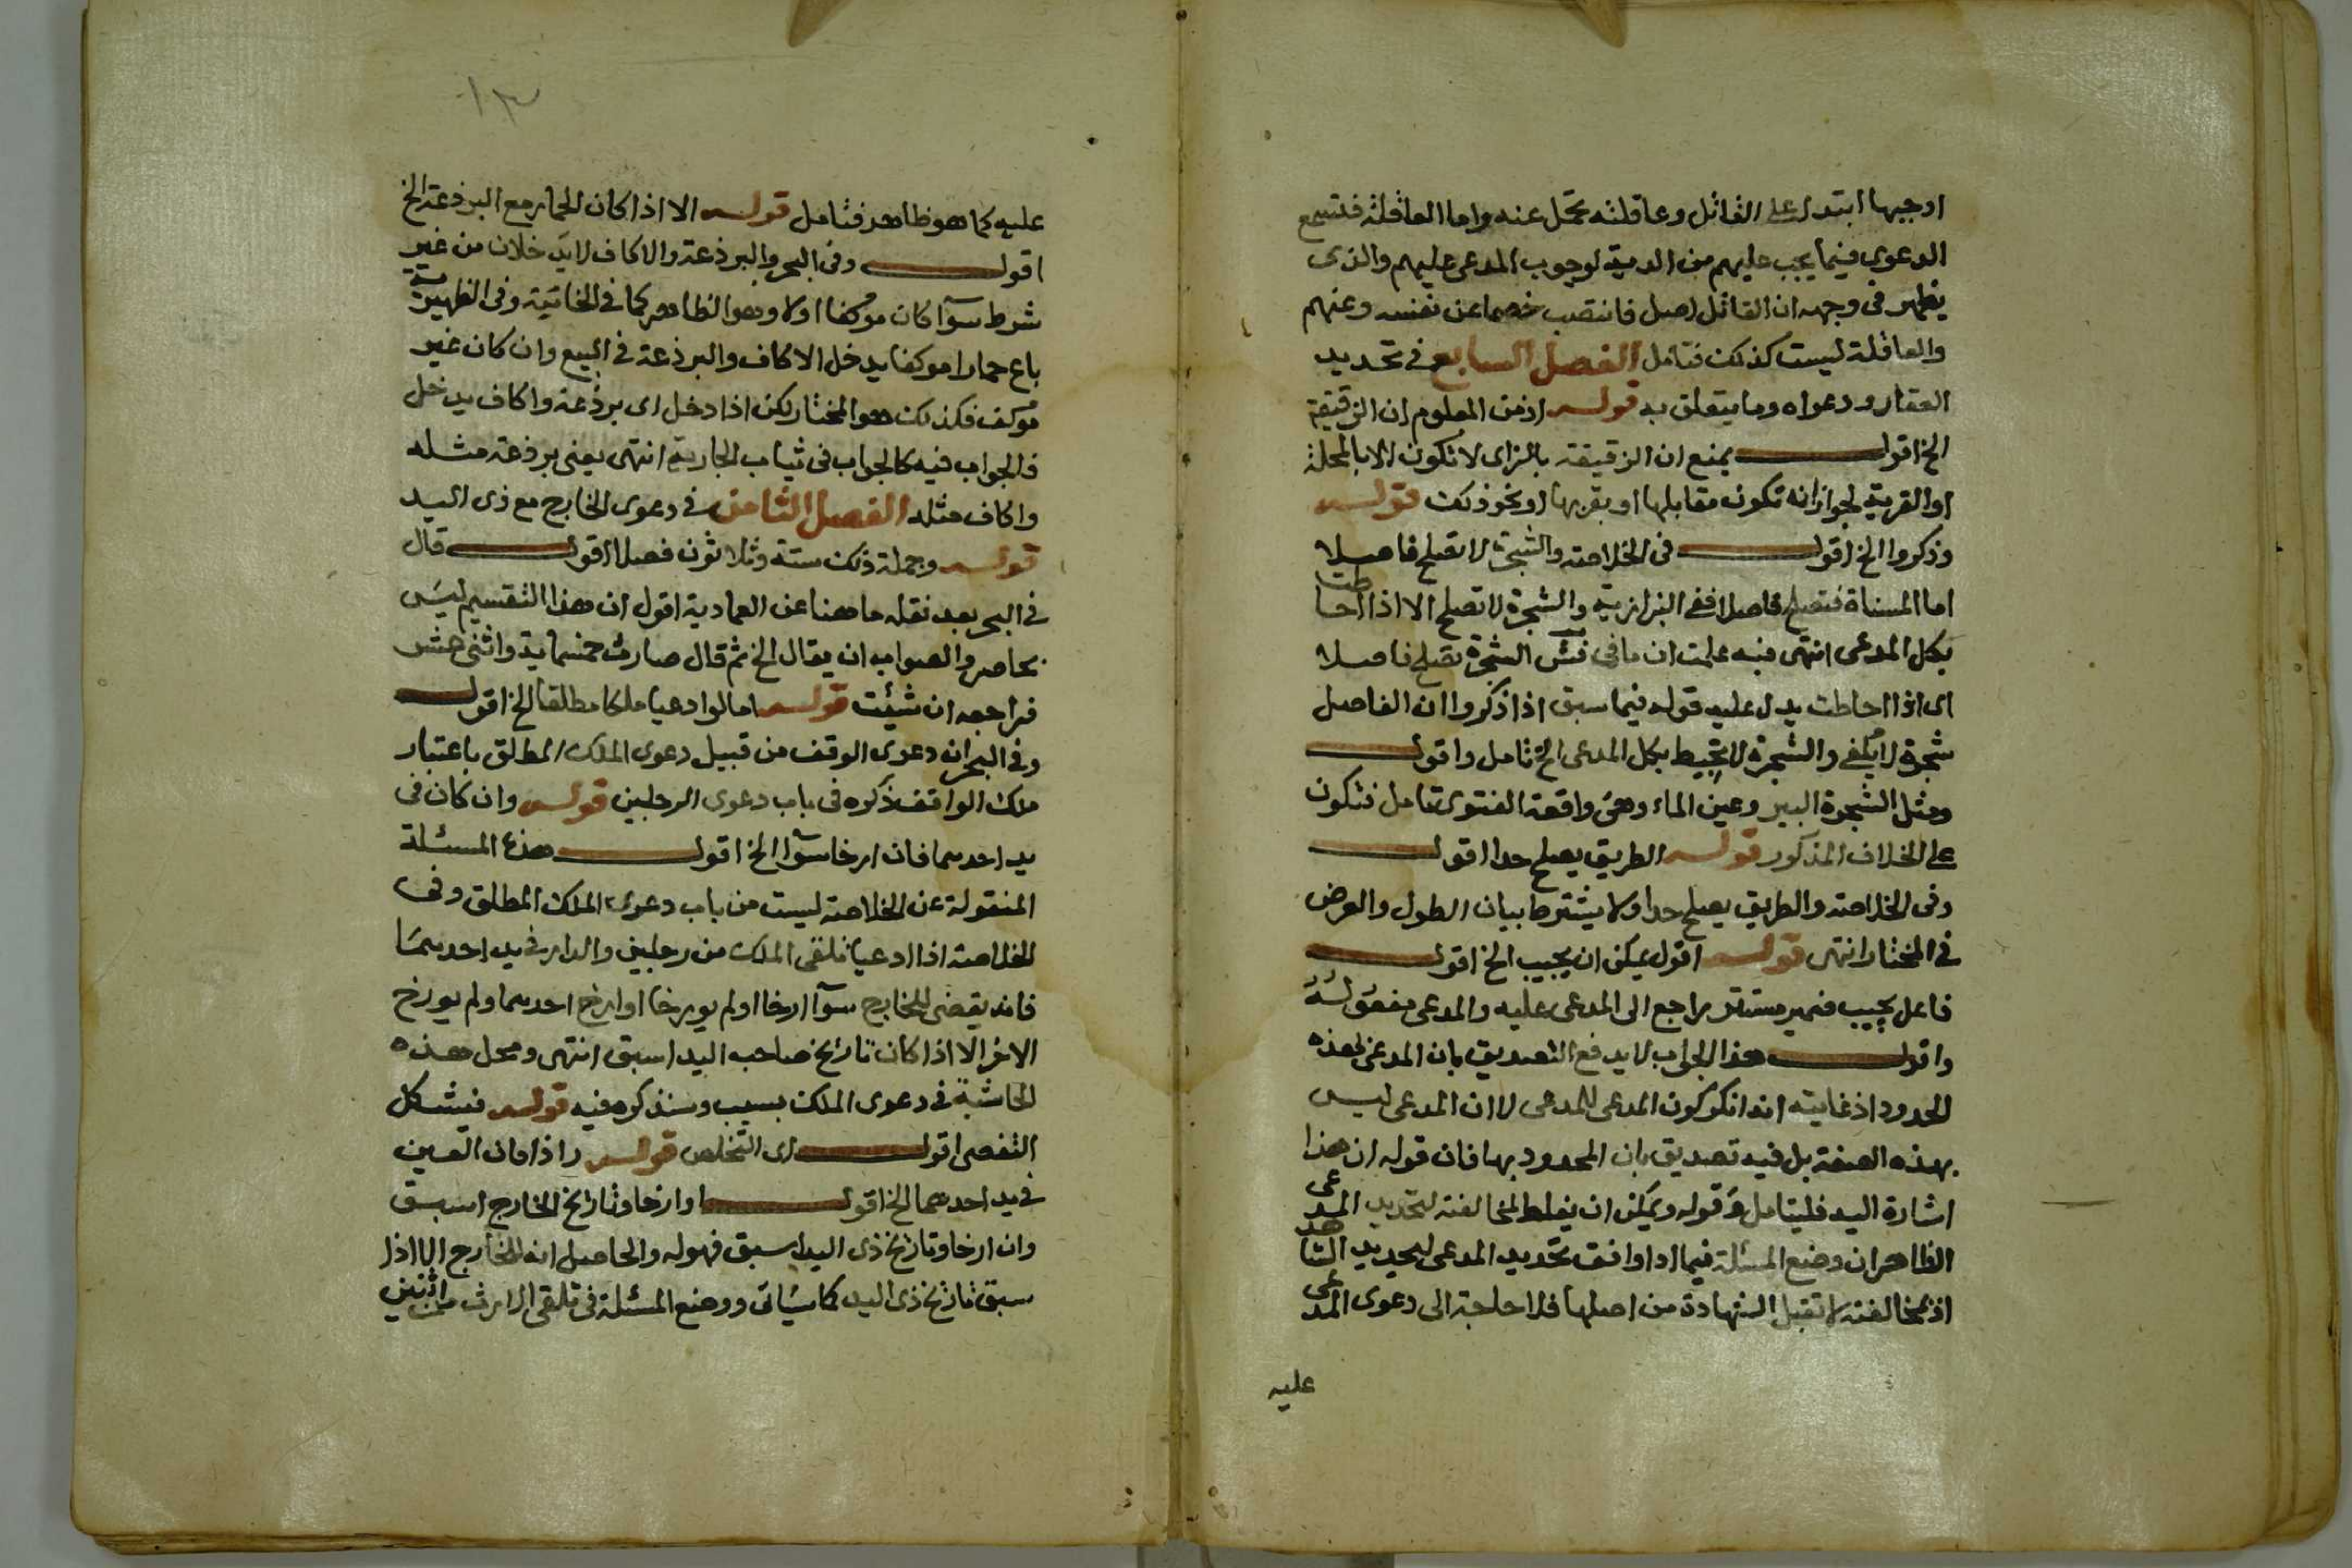 اوجبها ابتداء على القاتل وعاقلته تحمل عنه واما العاقلة فتسمع
الدعوى فيما يجب عليهم من الدية لوجوب المدعى عليهم والذى
يظهر فى وجهه ان القاتل اصل فانتصب خصما عن نفسه وعنهم
والعاقلة ليست كذلك فتامل الفصل السابع فى تحديد
العقار ودعواه وما يتعلق به قوله اذ من المعلوم ان الزقيقة
الخ اقول يمنع ان الزقيقة بالزاى لا تكون الا بالمحلة
او القرية لجواز انه تكون مقابلها او بقربها او نحو ذلك قوله
وذكروا الخ اقول فى الخلاصة والشجرة لا تصلح فاصلا
اما المسناة فتصلح فاصلا ففى البزازية والشجرة لا تصلح الا اذا احاطت
بكل المدعى انتهى فبه علمت ان ما فى الشجرة تصلح فاصلا
اى اذا احاطت يدل عليه قوله فيما سبق اذا ذكروا ان الفاصل
شجرة لا يكفى والشجرة لا تحيط بكل المدعى الخ تامل واقول
ومثل الشجرة البير وعين الماء وهى واقعة الفتوى تامل فتكون
على الخلاف المذكور قوله الطريق يصلح حدا اقول
وفى الخلاصة والطريق يصلح حدا ولا يشترط بيان الطول والعرض
فى المختار انتهى قوله اقول يمكن ان يجيب الخ اقول
فاعل يجيب ضمير مستتر راجع الى المدعى عليه والمدعى مفعوله
واقول هذا الجواب لا يدفع التصديق بان المدعى بهذه
الحدود اذ غايته انه انكر كون المدعى للمدعى لا ان المدعى ليس
بهذه الصفة بل فيه تصديق بان المحدود بها فان قوله ان هذا
اشارة اليه فليتامل وقوله ويمكن ان يغلط لمخالفته لتحديد المدعى
الظاهر ان وضع المسئلة فيما اذا وافق تحديد المدعى لتحديد الشاهد
اذ بمخالفته لا تقبل الشهادة من اصلها فلا حاجة الى دعوى المدعى
عليه
١٣
عليه كما هو ظاهر فتامل قوله الا اذا كان الحمار مع البرذعة الخ
اقول وفى البحر والبرذعة والاكاف لا يدخلان من غير
شرط سوآ كان موكفا اولا وهو الظاهر كما فى الخانية وفى الظهيرية
باع حمارا موكفا يدخل الاكاف والبرذعة فى البيع وان كان غير
موكف فكذلك هو المختار لكن اذا دخل اى برذعة واكاف يدخل
فالجواب فيه كالجواب فى ثياب الجارية انتهى يعنى برذعة مثله
واكاف مثله الفصل الثامن فى دعوى الخارج مع ذى اليد
قوله وجملة ذلك ستة وثلاثون فصلا اقول قال
فى البحر بعد نقله ما هنا عن العمادية اقول ان هذا التقسيم ليس
بحاصر والصواب ان يقال الخ ثم قال صارت خمسماية واثنى عشر
فراجعه ان شئت قوله اما لو ادعيا ملكا مطلقا الخ اقول
وفى البحر ان دعوى الوقف من قبيل دعوى الملك المطلق باعتبار
ملك الواقف ذكره فى باب دعوى الرجلين قوله وان كان فى
يد احدهما فان ارخا سوآ الخ اقول هذه المسئلة
المنقولة عن الخلاصة ليست من باب دعوى الملك المطلق وفى
الخلاصة اذا ادعيا تلقى الملك من رجلين والدار فى يد احدهما
فانه يقضى للخارج سوآ ارخا او لم يورخا او ارخ احدهما ولم يورخ
الاخر الا اذا كان تاريخ صاحب اليد اسبق انتهى ومحل هذه
الحاشية فى دعوى الملك بسبب وسنذكره فيه قوله فيشكل
التفصى اقول اى التخلص قوله واذا كان العين
فى يد احدهما الخ اقول او ارخا وتاريخ الخارج اسبق
وان ارخا وتاريخ ذى اليد اسبق فهو له والحاصل انه للخارج الا اذا
سبق تاريخ ذى اليد كما سيأتى ووضع المسئلة فى تلقى الارث من اثنين